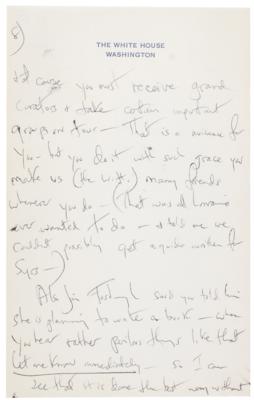 8)
THE WHITE HOUSE
WASHINGTON
of course you must receive grand
curators & take certain important
groups on tour — That is a nuisance for
you - but you do it with such grace you
make us (the W.H.) many friends
whenever you do — (That was all Lorraine
ever wanted to do — & told me we
couldn't possibly get a guide written for
5 yrs —)
Also Jim said you told him
she is planning to write a book — when
you hear rather perilous things like that
let me know immediately — so I can
see that it is done the best way without